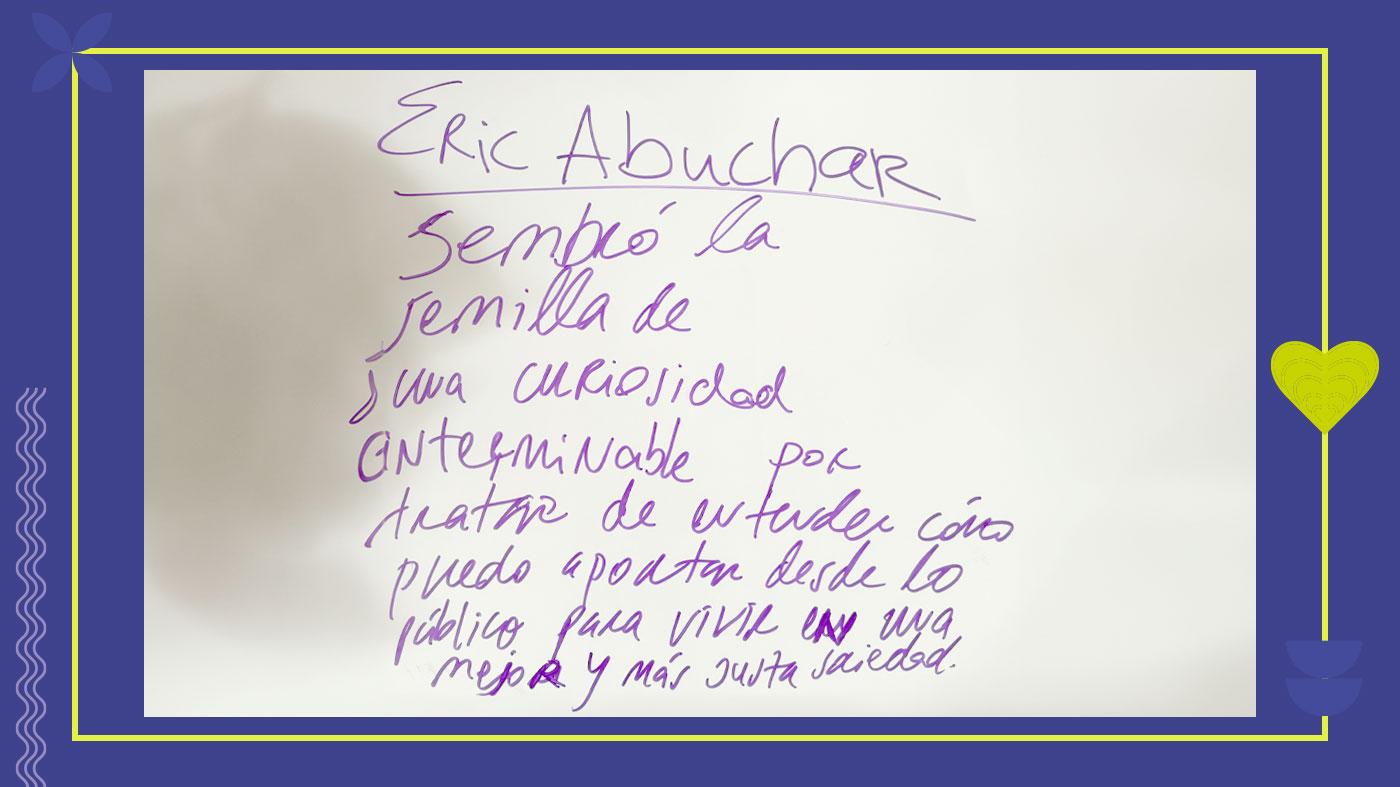 Eric Abuchar
Sembró la
semilla de
una curiosidad
interminable por
tratar de entender cómo
puedo aportar desde lo
público para vivir en una
mejor y más justa sociedad.